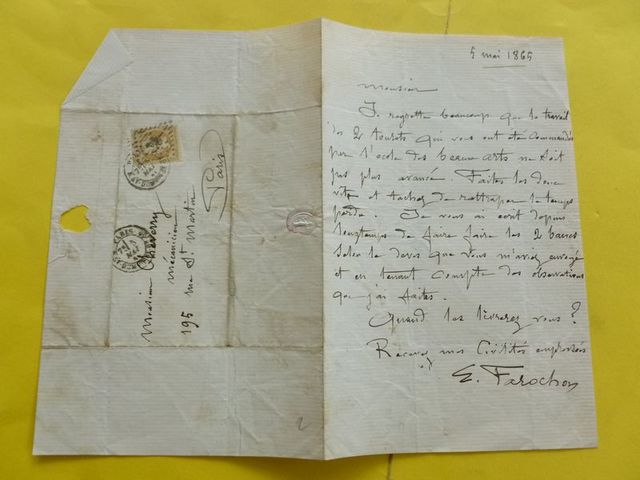 5 mai 1865
Monsieur
Je regrette beaucoup que le travail
des 2 tourets qui vous ont été commandés
par l'école des beaux arts ne soit
pas plus avancé. Faites les donc
vite et tachez de rattraper le temps
perdu. Je vous ai écrit depuis
longtemps de faire faire les 2
selon le devis que vous m'aviez envoyé
et en tenant compte des observations
que j'ai faites.
Quand les livrerez vous ?
Recevez mes Civilités empressées
E. Farochon
Monsieur Cheverry
mécanicien
195 rue St Martin
Paris